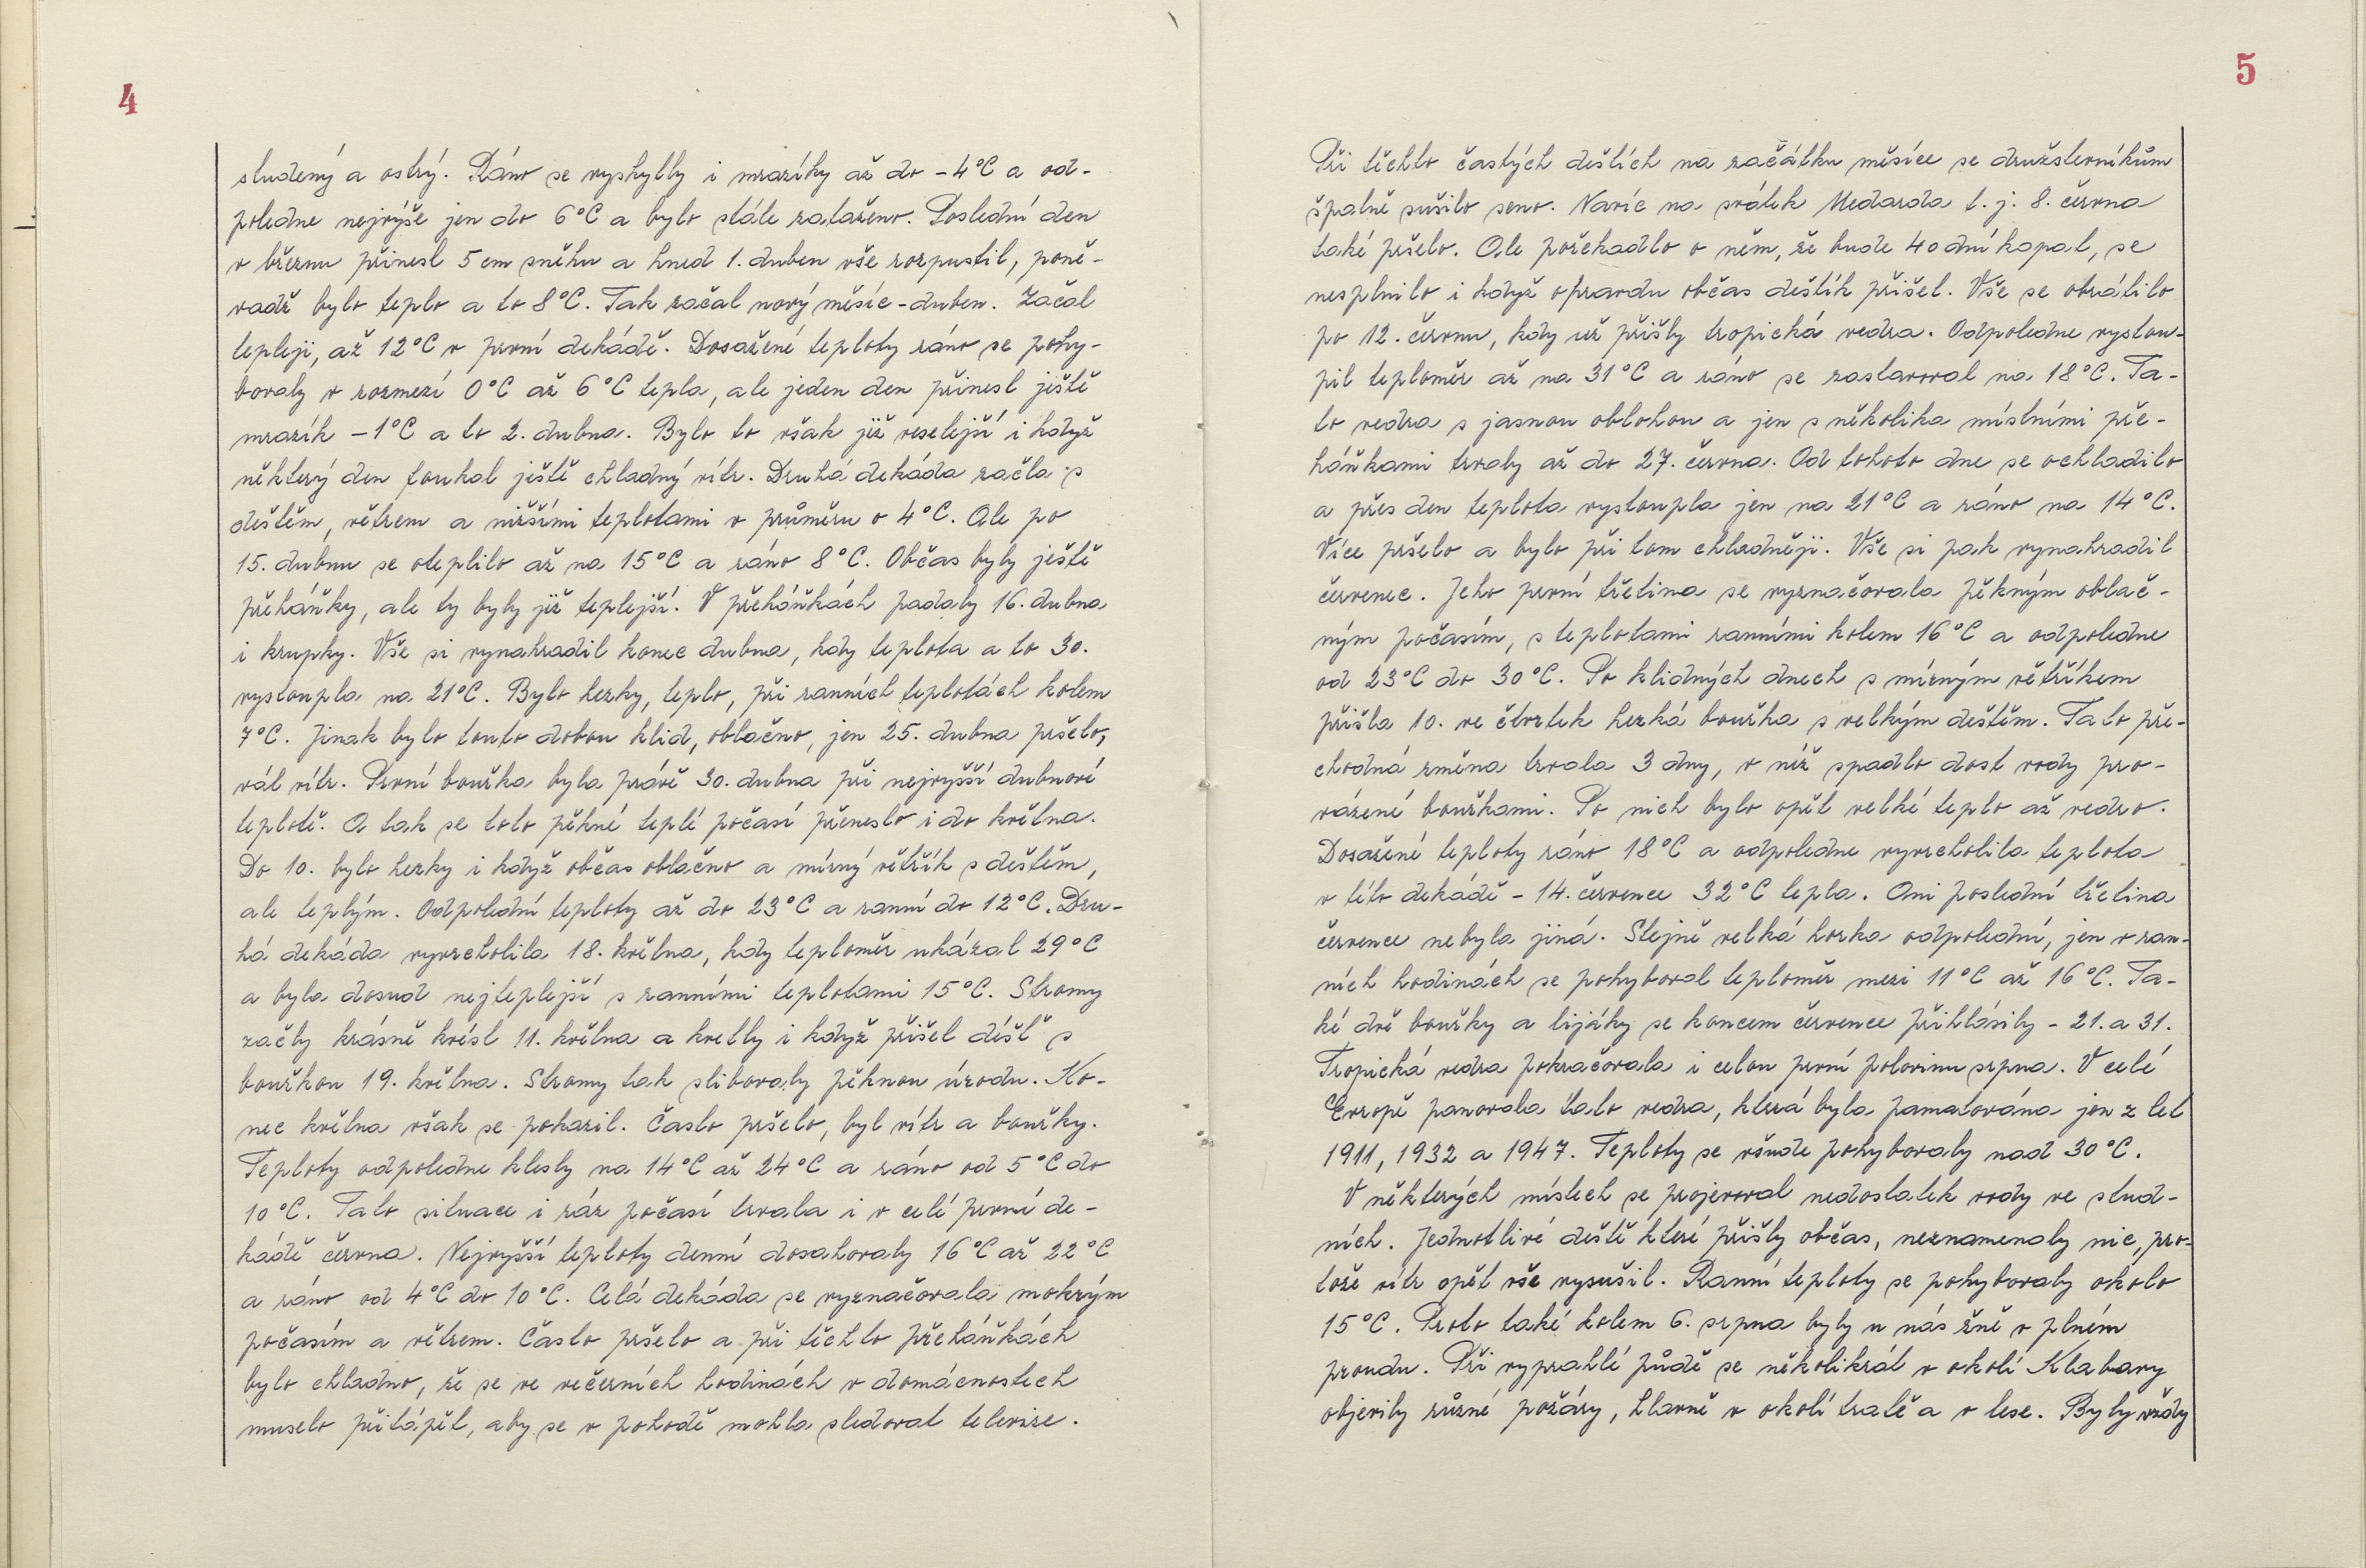 4
studený a ostrý. Ráno se vyskytly i mrazíky až do -4°C a od-
poledne nejvýše jen do 6°C a bylo stále zataženo. Poslední den
v březnu přinesl 5 cm sněhu a hned 1. duben vše rozpustil, poně-
vadž bylo teplo a to 8°C. Tak začal nový měsíc-duben. Začal
tepleji, až 12°C v první dekádě. Dosažené teploty ráno se pohy-
bovaly v rozmezí 0°C až 6°C tepla, ale jeden den přinesl ještě
mrazík -1°C a to 2. dubna. Bylo to však již veselejší i když
některý den foukal ještě chladný vítr. Druhá dekáda začla s
deštěm, větrem a nižšími teplotami v průměru o 4°C. Ale po
15. dubnu se oteplilo až na 15°C a ráno 8°C. Občas byly ještě
přeháňky, ale ty byly již teplejší. V přeháňkách padaly 16. dubna
i krupky. Vše si vynahradil konec dubna, kdy teplota a to 30.
vystoupla na 21°C. Bylo hezky, teplo, při ranních teplotách kolem
7°C. Jinak bylo touto dobou klid, oblačno, jen 25. dubna pršelo,
vál vítr. První bouřka byla právě 30. dubna při nejvyšší dubnové
teplotě. A tak se toto pěkné teplé počasí přeneslo i do května.
Do 10. bylo hezky i když občas oblačno a mírný větřík s deštěm,
ale teplým. Odpolední teploty až do 23°C a ranní do 12°C. Dru-
há dekáda vyvrcholila 18. května, kdy teploměr ukázal 29°C
a byla dosud nejteplejší s ranními teplotami 15°C. Stromy
začly krásně kvést 11. května a kvetly i když přišel déšť s
bouřkou 19. května. Stromy tak slibovaly pěknou úrodu. Ko-
nec května však se pokazil. Často pršelo, byl vítr a bouřky.
Teploty odpoledne klesly na 14°C až 24°C a ráno od 5°C do
10°C. Tato situace i ráz počasí trvala i v celé první de-
kádě června. Nejvyšší teploty denní dosahovaly 16°C až 22°C
a ráno od 4°C do 10°C. Celá dekáda se vyznačovala mokrým
počasím a větrem. Často pršelo a při těchto přeháňkách
bylo chladno, že se ve večerních hodinách v domácnostech
muselo přitápět, aby se v pohodě mohla sledovat televize.
5
Při těchto častých deštích na začátku měsíce se družstevníkům
špatně sušilo seno. Navíc na svátek Medarda t. j. 8. června
také pršelo. Ale pořekadlo o něm, že bude 40 dní kapat, se
nesplnilo i když opravdu občas deštík přišel. Vše se obrátilo
po 12. červnu, kdy už přišly tropická vedra. Odpoledne vystou-
pil teploměr až na 31°C a ráno se zastavoval na 18°C. Ta-
to vedra s jasnou oblohou a jen s několika místními pře-
háňkami trvaly až do 27. června. Od tohoto dne se ochladilo
a přes den teplota vystoupla jen na 21°C a ráno na 14°C.
Více pršelo a bylo při tom chladněji. Vše si pak vynahradil
červenec. Jeho první třetina se vyznačovala pěkným oblač-
ným počasím, s teplotami ranními kolem 16°C a odpoledne
od 23°C do 30°C. Po klidných dnech s mírným větříkem
přišla 10. ve čtvrtek hezká bouřka s velkým deštěm. Tato pře-
chodná změna trvala 3 dny, v níž spadlo dost vody pro-
vázené bouřkami. Po nich bylo opět velké teplo až vedro.
Dosažené teploty ráno 18°C a odpoledne vyvrcholila teplota
v této dekádě - 14. července 32°C tepla. Ani poslední třetina
července nebyla jiná. Stejně velká horka odpolední, jen v ran-
ních hodinách se pohyboval teploměr mezi 11°C až 16°C. Ta-
ké dvě bouřky a lijáky se koncem července přihlásily - 21. a 31.
Tropická vedra pokračovala i celou první polovinu srpna. V celé
Evropě panovala tato vedra, která byla pamatována jen z let
1911, 1932 a 1947. Teploty se všude pohybovaly nad 30°C.
V některých místech se projevoval nedostatek vody ve stud-
ních. Jednotlivé deště které přišly občas, neznamenaly nic, pro-
tože vítr opět vše vysušil. Ranní teploty se pohybovaly okolo
15°C. Proto také kolem 6. srpna byly u nás žně v plném
proudu. Při vyprahlé půdě se několikrát v okolí Klabavy
objevily různé požáry, hlavně v okolí tratě a v lese. Byly vždy